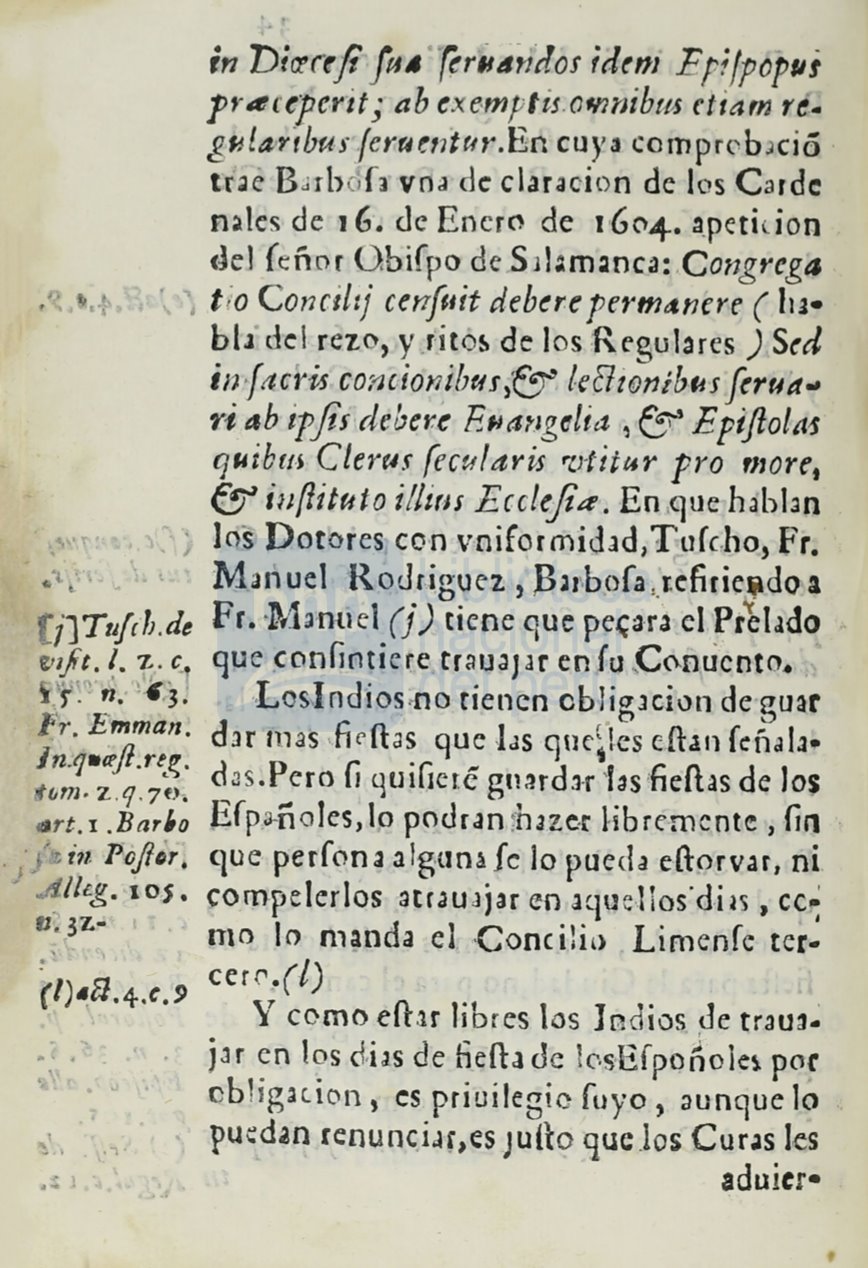 in Diœcesi sua seruandos idem Epispopus
præceperit; ab exemptis omnibus etiam re-
gularibus seruentur. En cuya comprobació̃
trae Barbosa vna de claracion de los Carde
nales de 16. de Enero de 1604. apeticion
del señor Obispo de Salamanca: Congrega
tio Concilij censuit debere permanere ( ha-
bla del rezo, y ritos de los Regulares ) Sed
in sacris concionibus, & lectionibus serua-
ri ab ipsis debere Euangelia , & Epistolas
quibus Clerus secularis vtitur pro more,
& instituto illius Ecclesiæ. En que hablan
los Dotores con vniformidad, Tuscho, Fr.
Manuel Rodriguez , Barbosa, refiriendo a
Fr. Manuel (j) tiene que peçara el Prelado
que consintiere trauajar en su Conuento.
Los Indios no tienen obligacion de guar
dar mas fiestas que las que les estan señala-
das. Pero si quisierẽ guardar las fiestas de los
Españoles, lo podran hazer libremente , sin
que persona alguna se lo pueda estorvar, ni
compelerlos atrauajar en aquellos dias , co-
mo lo manda el Concilio Limense ter-
cero. (l)
Y como estar libres los Indios de traua-
jar en los dias de fiesta de los Espoñoles por
obligacion , es priuilegio suyo , aunque lo
puedan renunciar, es justo que los Curas les
aduier-
[j] Tusch. de
visit. l. 2. c.
15. n. 63.
Fr. Emman.
In. quæst. reg.
tom. 2. q. 70.
art. 1. Barbo
sa in Postor.
Alleg. 105.
n. 32-
(l) act. 4. c. 9